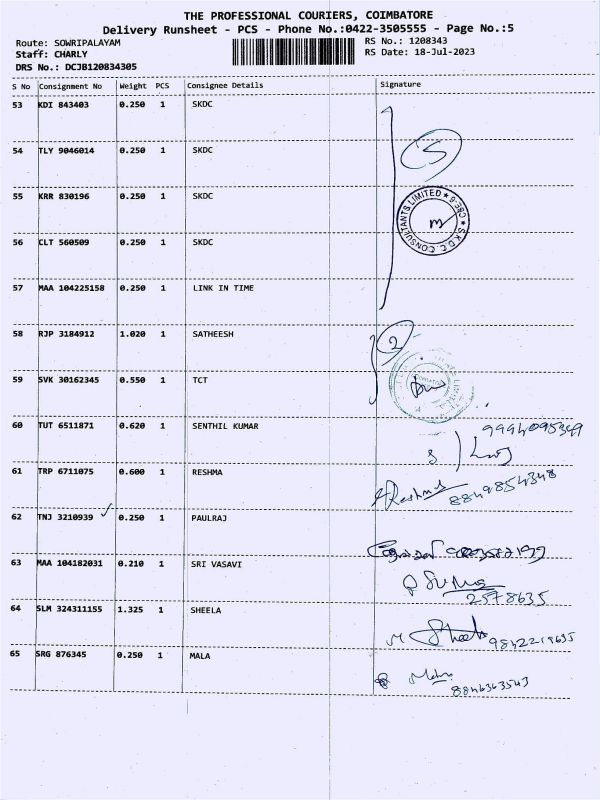 THE PROFESSIONAL COURIERS, COIMBATORE
Delivery Runsheet - PCS - Phone No.:0422-3505555 - Page No.:5
Route: SOWRIPALAYAM RS No.: 1208343
Staff: CHARLY RS Date: 18-Jul-2023
DRS No.: DCJB120834305
S No Consignment No Weight PCS Consignee Details Signature
53 KDI 843403 0.250 1 SKDC
54 TLY 9046014 0.250 1 SKDC
5
55 KRR 830196 0.250 1 SKDC
S.K.D.C. CONSULTANTS LIMITED ★ CBE-6 ★
56 CLT 560509 0.250 1 SKDC
57 MAA 104225158 0.250 1 LINK IN TIME
58 RJP 3184912 1.020 1 SATHEESH
2
59 SVK 30162345 0.550 1 TCT
60 TUT 6511871 0.620 1 SENTHIL KUMAR
9994095349
61 TRP 6711075 0.600 1 RESHMA
Reshma
8849854348
62 TNJ 3210939 0.250 1 PAULRAJ
63 MAA 104182031 0.210 1 SRI VASAVI
2578635
64 SLM 324311155 1.325 1 SHEELA
M Sheela 9842219635
65 SRG 876345 0.250 1 MALA
Mala
8846363543